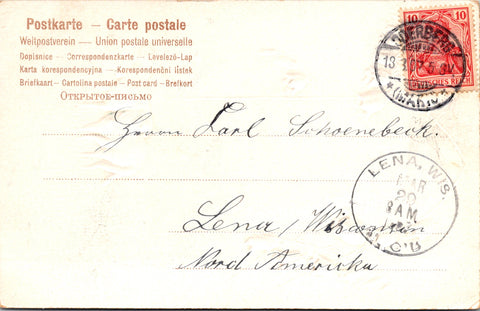 Postkarte – Carte postale
Weltpostverein – Union postale universelle
Dopisnice – Correspondenzkarte – Levelező-Lap
Karta korespondencyjna – Korespondenční lístek
Briefkaart – Cartolina postale – Post card – Brefkort
Открытое-письмо
10 10
(MARK)
Herrn Carl Schoenebeck.
Lena / Wisconsin
Nord Amerika
LENA, WIS.
MAR
20
8 AM
REC'D